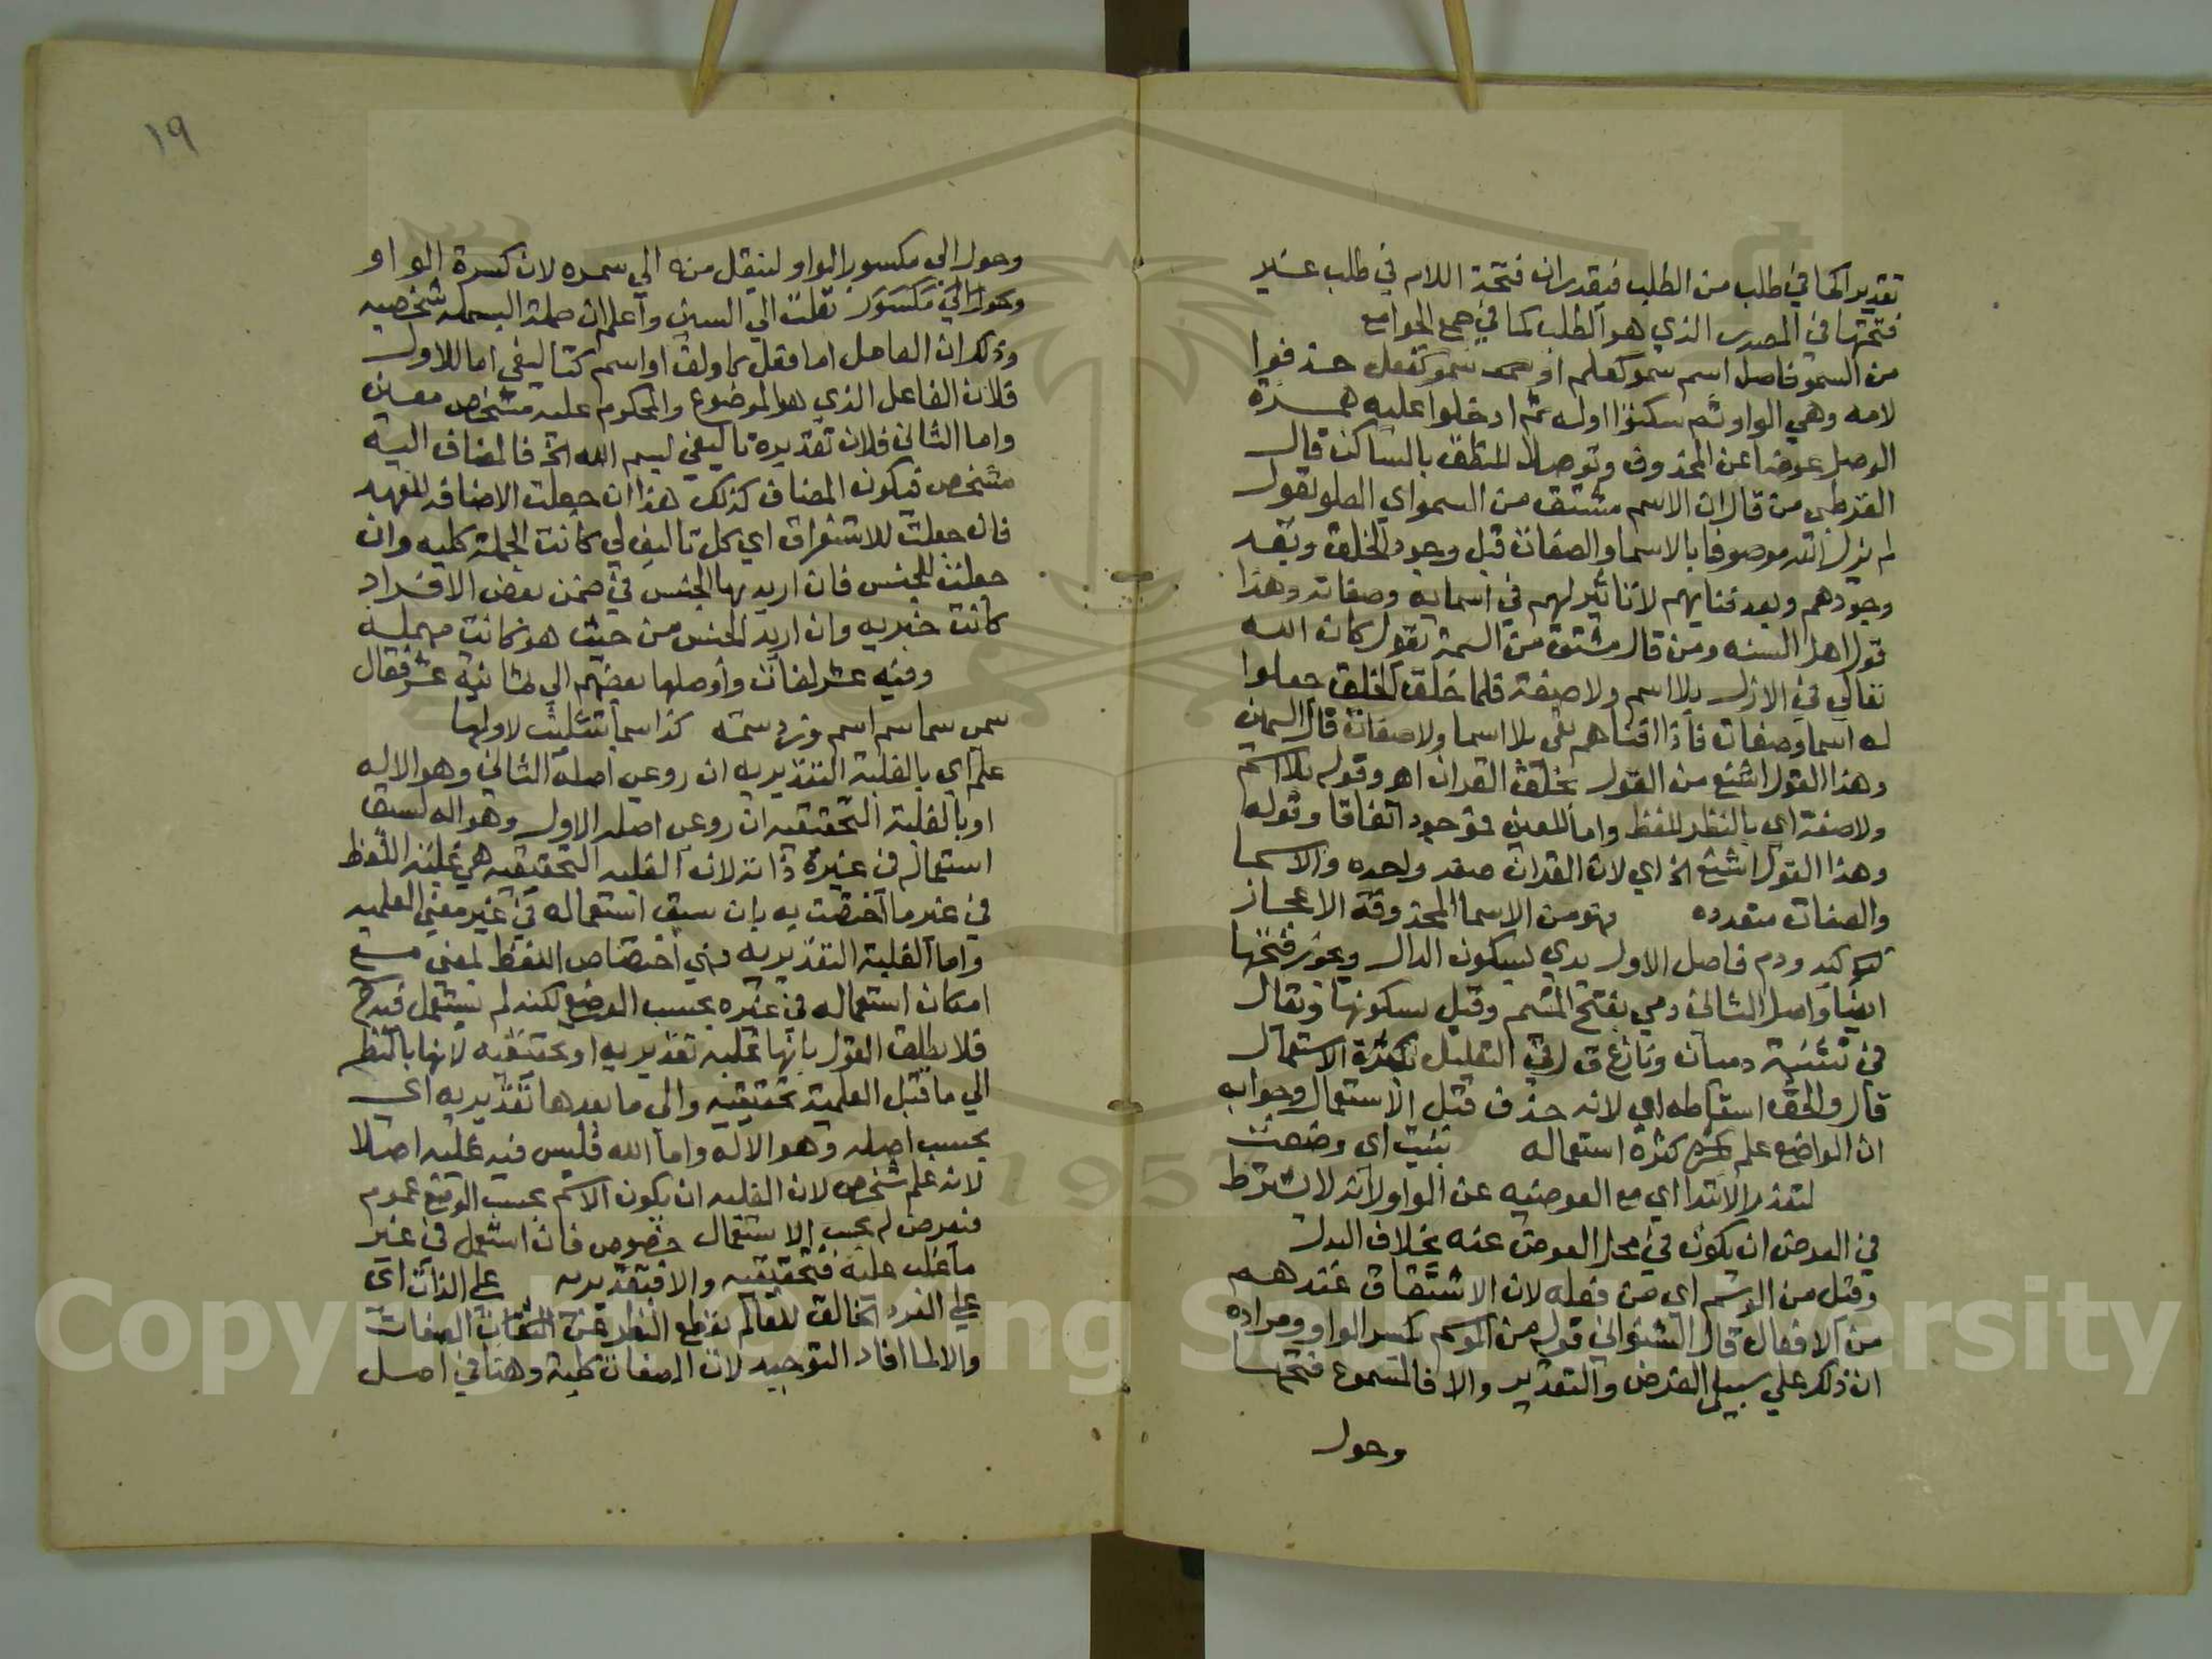 تقديرا كما في طلب من الطلب فيقدر ان فتحة اللام في طلب غير
فتحتها في المصدر الذي هو الطلب كما في جمع الجوامع
من السمو فاصل اسم سمو كعلم او سمو كقفل حذفوا
لامه وهي الواو ثم سكنوا اوله ثم ادخلوا عليه همزة
الوصل عوضا عن المحذوف وتوصلا للنطق بالساكن قال
القرطبي من قال ان الاسم مشتق من السمو اي العلو يقول
لم يزل الله موصوفا بالاسما والصفات قبل وجود الخلق وبعد
وجودهم وبعد فنايهم لا تاثير لهم في اسمايه وصفاته وهذا
قول اهل السنه ومن قال مشتق من السمة يقول كان الله
تعالي في الازل بلا اسم ولا صفة فلما خلق الخلق جعلوا
له اسما وصفات فاذا افناهم بقي بلا اسما ولا صفات قال السمين
وهذا القول اشنع من القول بخلق القران اهـ وقوله بلا اسم
ولا صفة اي بالنظر للفظ واما المعني فموجود اتفاقا وقوله
وهذا القول اشنع الخ اي لان القران صفه واحده والاسما
والصفات متعدده فهو من الاسما المحذوفة الاعجاز
كيد ودم فاصل الاول يدي بسكون الدال ويجوز فتحها
ايضا واصل الثاني دمي بفتح الميم وقيل بسكونها ويقال
في تثنيته دميان ونازع ق ل في التعليل بكثرة الاستعمال
قال والحق اسقاطه اي لانه حذف قبل الاستعمال وجوابه
ان الواضع علم كثرة استعماله بنيت اي وضعت
لتعذر الابتدا اي مع العوضيه عن الواو لانه لا يشترط
في العوض ان يكون في محل المعوض عنه بخلاف البدل
وقيل من الوسم اي من فعله لان الاشتقاق عندهم
من الافعال قال الشنواني قوله من الوسم بكسر الواو ومراده
ان ذلك علي سبيل الفرض والتقدير والا فالمسموع فتحها
وحول
١٩
وحول الي مكسور الواو لينقل منه الي سمه لان كسرة الواو
وحول الي مكسور نقلت الي السين واعلم ان جملة البسمله شخصيه
وذلك ان العامل اما فعل كاولف او اسم كتاليفي اما الاول
فلان الفاعل الذي هو الموضوع والمحكوم عليه مشخص معين
واما الثاني فلان تقديره تاليفي بسم الله الخ فالمضاف اليه
مشخص فيكون المضاف كذلك هذا ان جعلت الاضافه للعهد
فان جعلت للاستغراق اي كل تاليف لي كانت الجملة كليه وان
جعلت للجنس فان اريد بها الجنس في ضمن بعض الافراد
كانت جزيه وان اريد الجنس من حيث هو كانت مهمله
وفيه عشر لغات واوصلها بعضهم الي ثمانية عشر فقال
سم سما سم اسم وزد سمة كذا سما بتثليث لاولها
علم اي بالغلبة التقديريه ان روعي اصله الثاني وهو الاله
او بالغلبة التحقيقيه ان روعي اصله الاول وهو اله لسبق
استعماله في غيره ذاته لان الغلبه التحقيقيه هي غلبة اللفظ
في غير ما اختصت به بان سبق استعماله في غير معني العلميه
واما الغلبة التقديريه فهي اختصاص اللفظ لمعني مع
امكان استعماله في غيره بحسب الوضع لكنه لم يستعمل فيه
فلا يطلق القول بانها غلبه تقديريه او تحقيقيه لانها بالنظر
الي ما قبل العلمية تحقيقيه والي ما بعدها تقديريه اي
بحسب اصله وهو الاله واما الله فليس فيه غلبه اصلا
لانه علم شخص لان الغلبه ان يكون الاسم بحسب الوضع عموم
فيعرض له بحسب الاستعمال خصوص فان استعمل في غير
ما غلب عليه فتحقيقيه والا فتقديريه علي الذات اي
علي الفرد الخالق للعالم بقطع النظر عن الصفات
والا لما افاد التوحيد لان الصفات كلية وهنا في اصل